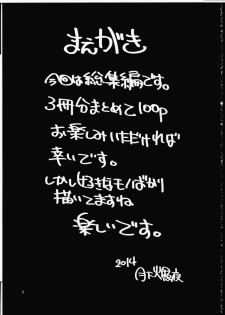 まえがき
今回は総集編です。
3冊分まとめて100p
お楽しみいただければ
幸いです。
しかし好きなモノばかり
描いてますね
楽しいです。
2014
月下